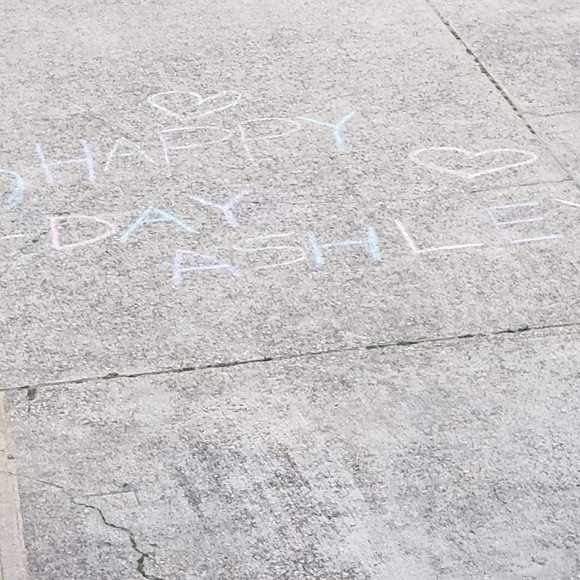 HAPPY
-DAY
ASHLEY